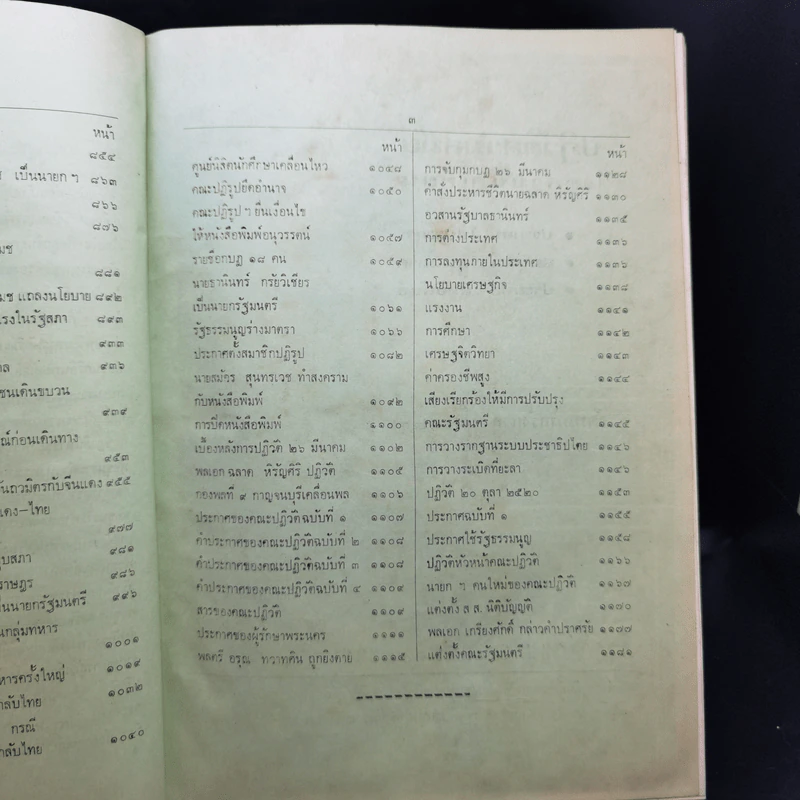 หน้า
๘๕๔
เป็นนายก ฯ ๘๖๓
๘๖๖
๘๗๖
มช
๘๘๑
มช แถลงนโยบาย ๘๙๒
แรงในรัฐสภา ๘๙๓
๙๓๓
ล ๙๓๖
ชนเดินขบวน
๙๓๙
ณ์ก่อนเดินทาง
๙๕๓
ันถวมิตรกับจีนแดง ๙๕๕
แดง–ไทย
๙๗๗
บสภา ๙๘๑
ราษฎร ๙๘๖
ป็นนายกรัฐมนตรี ๙๙๖
นกลุ่มทหาร
๑๐๐๑
หารครั้งใหญ่ ๑๐๑๙
กลับไทย ๑๐๓๒
กรณี
กลับไทย ๑๐๔๐
๓
หน้า
ศูนย์นิสิตนักศึกษาเคลื่อนไหว ๑๐๔๘
คณะปฏิรูปยึดอำนาจ ๑๐๕๐
คณะปฏิรูป ฯ ยื่นเงื่อนไข
ให้หนังสือพิมพ์อนุวรรตน์ ๑๐๕๗
รายชื่อกบฏ ๑๘ คน ๑๐๕๙
นายธานินทร์ กรัยวิเชียร
เป็นนายกรัฐมนตรี ๑๐๖๑
รัฐธรรมนูญร่างมาตรา ๑๐๖๖
ประกาศตั้งสมาชิกปฏิรูป ๑๐๘๒
นายสมัคร สุนทรเวช ทำสงคราม
กับหนังสือพิมพ์ ๑๐๙๒
การปิดหนังสือพิมพ์ ๑๑๐๐
เบื้องหลังการปฏิวัติ ๒๖ มีนาคม ๑๑๐๒
พลเอก ฉลาด หิรัญศิริ ปฏิวัติ ๑๑๐๕
กองพลที่ ๙ กาญจนบุรีเคลื่อนพล ๑๑๐๖
ประกาศของคณะปฏิวัติฉบับที่ ๑ ๑๑๐๗
คำประกาศของคณะปฏิวัติฉบับที่ ๒ ๑๑๐๘
คำประกาศของคณะปฏิวัติฉบับที่ ๓ ๑๑๐๘
คำประกาศของคณะปฏิวัติฉบับที่ ๔ ๑๑๐๙
สารของคณะปฏิวัติ ๑๑๐๙
ประกาศของผู้รักษาพระนคร ๑๑๑๑
พลตรี อรุณ ทวาทศิน ถูกยิงตาย ๑๑๑๕
หน้า
การจับกุมกบฏ ๒๖ มีนาคม ๑๑๒๘
คำสั่งประหารชีวิตนายฉลาด หิรัญศิริ ๑๑๓๐
อวสานรัฐบาลธานินทร์ ๑๑๓๕
การต่างประเทศ ๑๑๓๖
การลงทุนภายในประเทศ ๑๑๓๖
นโยบายเศรษฐกิจ ๑๑๓๘
แรงงาน ๑๑๔๑
การศึกษา ๑๑๔๒
เศรษฐจิตวิทยา ๑๑๔๓
ค่าครองชีพสูง ๑๑๔๔
เสียงเรียกร้องให้มีการปรับปรุง
คณะรัฐมนตรี ๑๑๔๕
การวางรากฐานระบบประชาธิปไตย ๑๑๔๖
การวางระเบิดที่ยะลา ๑๑๔๖
ปฏิวัติ ๒๐ ตุลา ๒๕๒๐ ๑๑๕๓
ประกาศฉบับที่ ๑ ๑๑๕๕
ประกาศใช้รัฐธรรมนูญ ๑๑๕๘
ปฏิวัติหัวหน้าคณะปฏิวัติ ๑๑๖๖
นายก ฯ คนใหม่ของคณะปฏิวัติ ๑๑๖๗
แต่งตั้ง ส.ส. นิติบัญญัติ ๑๑๗๐
พลเอก เกรียงศักดิ์ กล่าวคำปราศรัย ๑๑๗๗
แต่งตั้งคณะรัฐมนตรี ๑๑๘๑